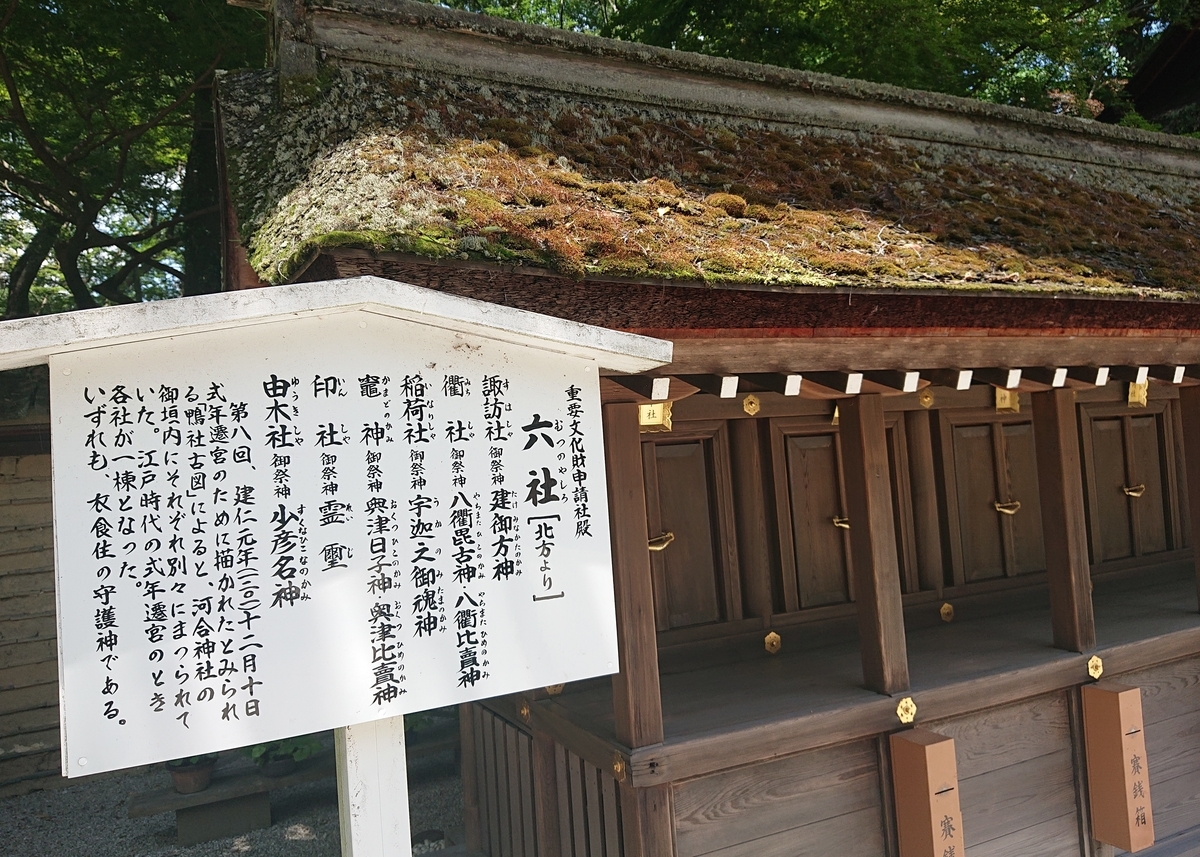 重要文化財申請社殿
六社［北方より］
むつのやしろ
諏訪社 御祭神 建御方神
すはしゃ たけみなかたのかみ
衢社 御祭神 八衢毘古神・八衢比賣神
みちしゃ やちまたひこのかみ やちまたひめのかみ
稲荷社 御祭神 宇迦之御魂神
いなりしゃ うかのみたまのかみ
竈神 御祭神 奥津日子神 奥津比賣神
かまどのかみ おくつひこのかみ おくつひめのかみ
印社 御祭神 霊璽
いんしゃ れいじ
由木社 御祭神 少彦名神
ゆうきしゃ すくなひこなのかみ
第八回、建仁元年(一二〇一)十二月十日
式年遷宮のために描かれたとみられ
る「鴨社古図」によると、河合神社の
御垣内にそれぞれ別々にまつられて
いた。江戸時代の式年遷宮のとき
各社が一棟となった。
いずれも、衣食住の守護神である。
社
神
賽銭
賽銭箱